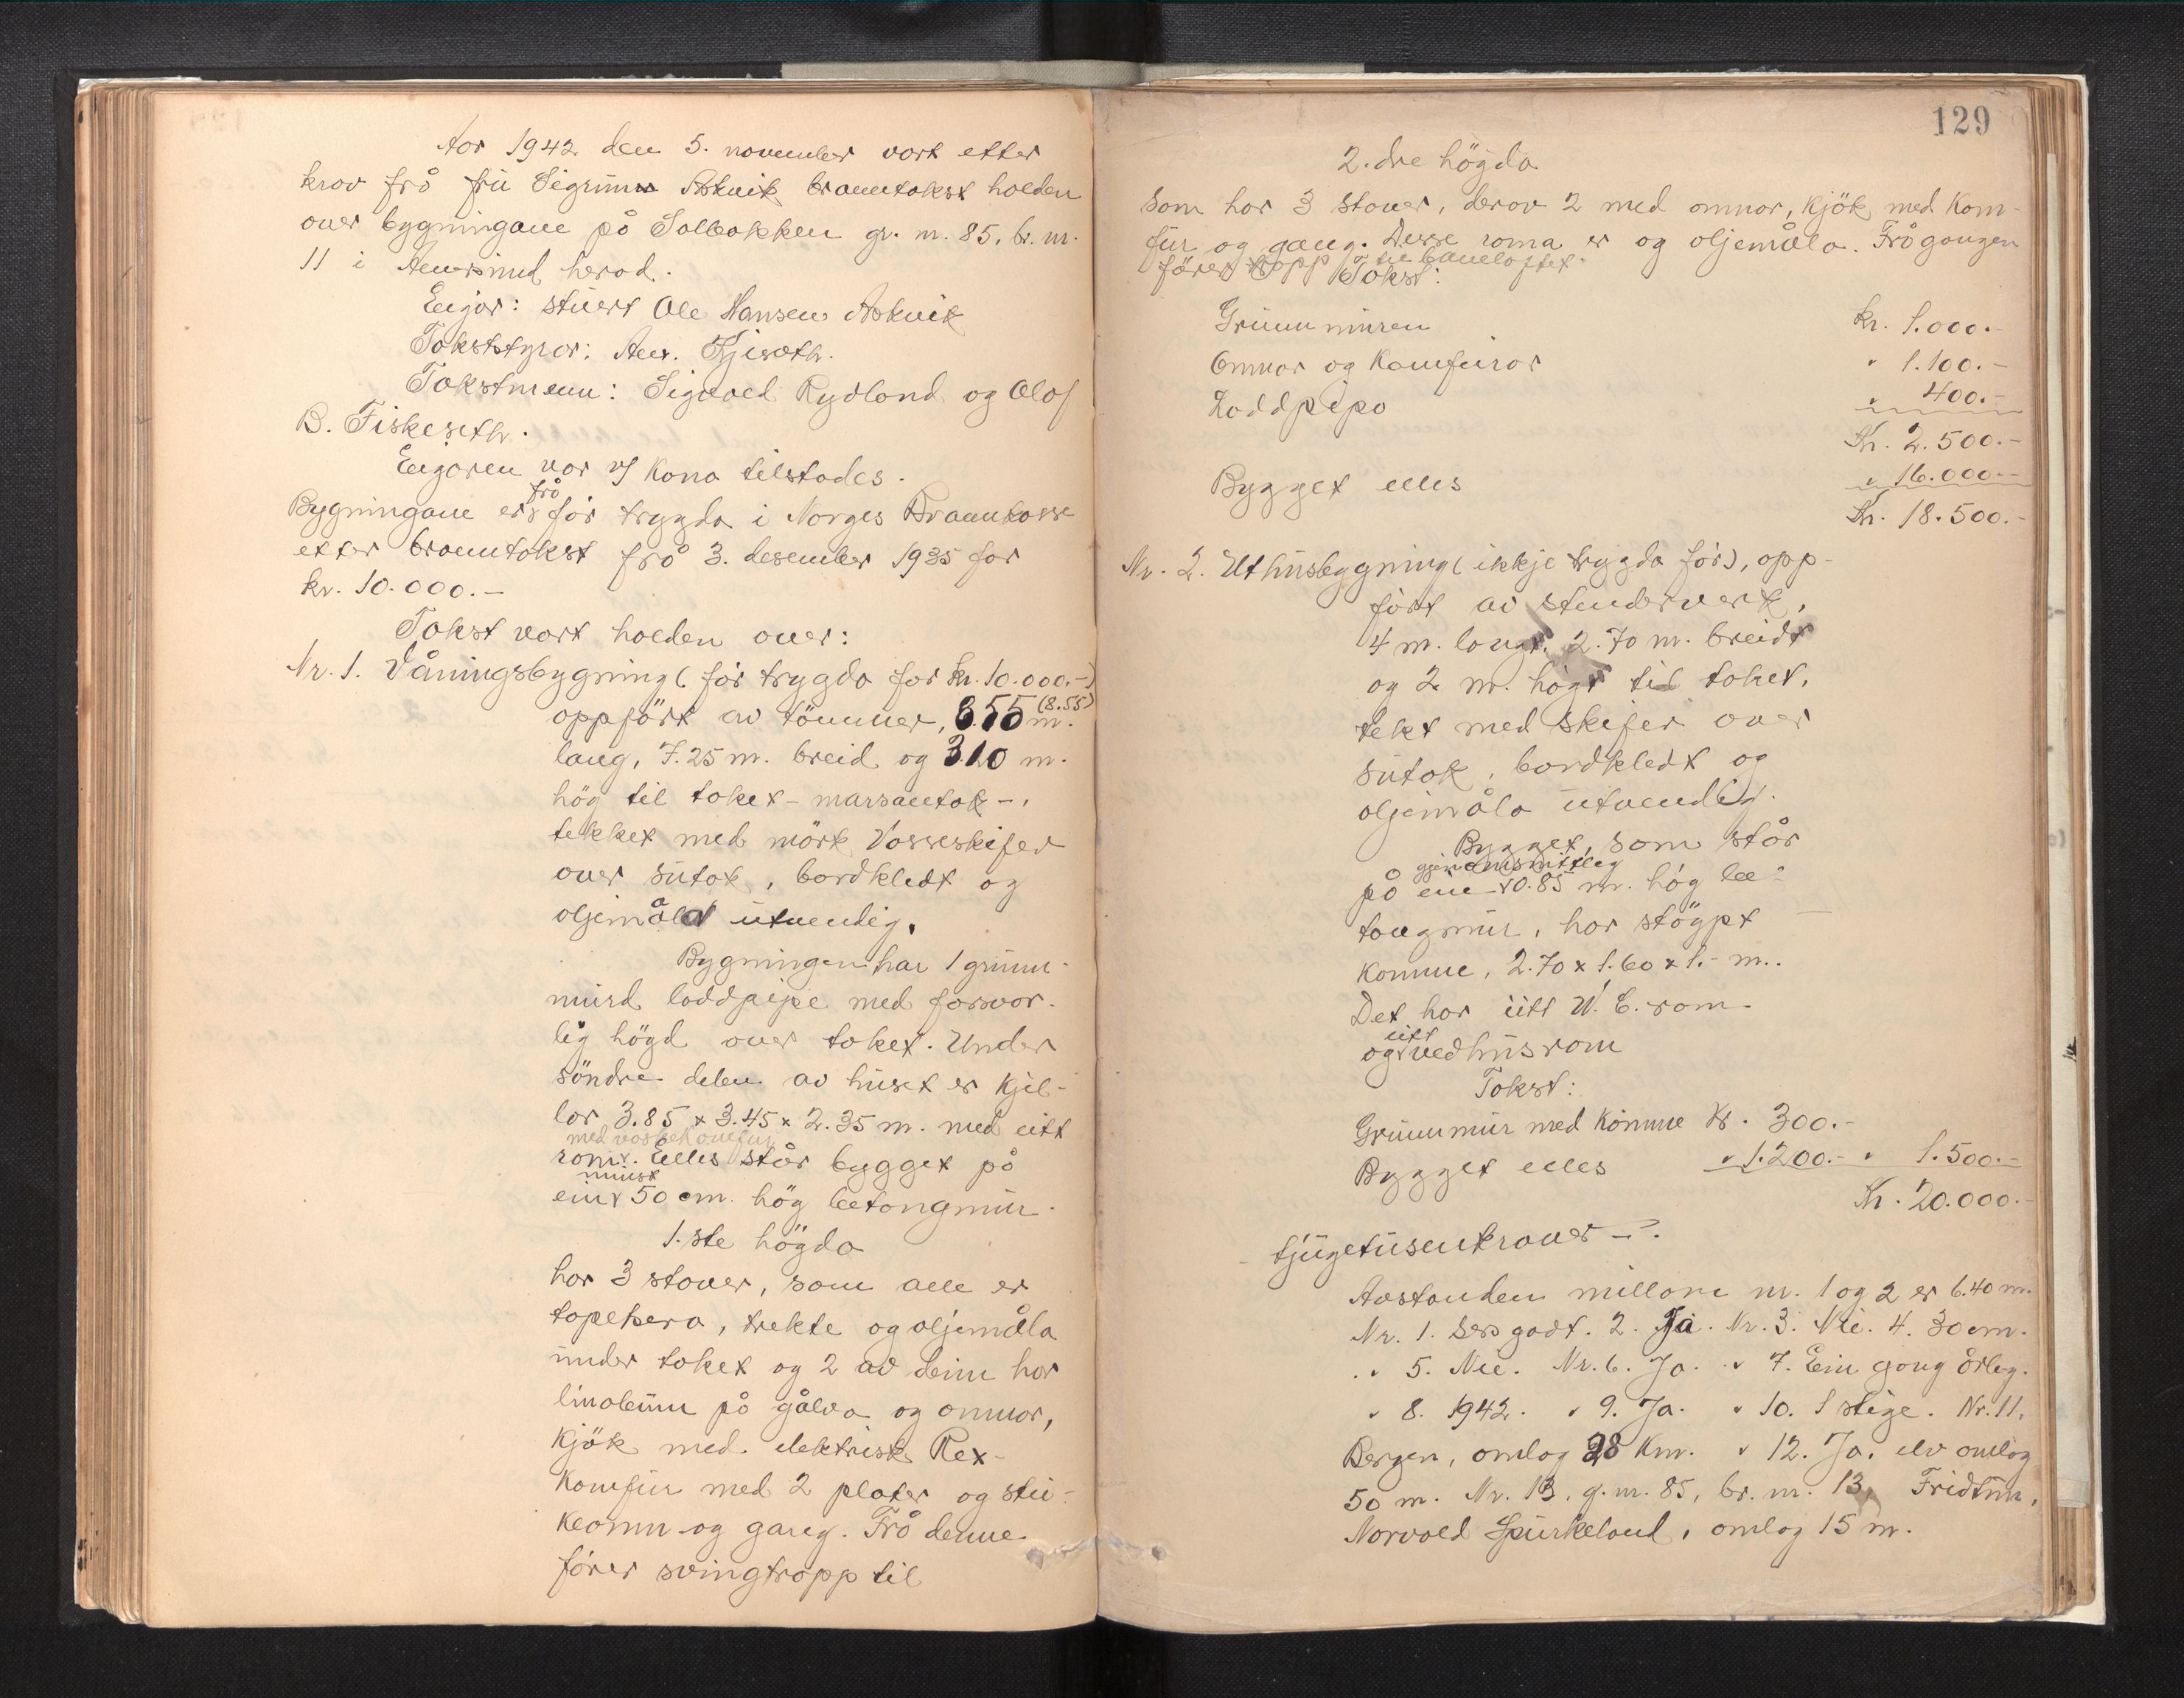 Aar 1942 den 5. november vart etter
krav frå fru Sigrunn Askvik branntakst halden
over bygningane på Solbakken gr. nr. 85, br. nr.
11 i herad.
Eigar: stuert Ole Hansen Askvik
Takststyrar:
Takstmenn: Sigvald Rydland og Olaf
B. Fiskeseth.
Eigaren var v/ Kona tilstades.
Bygningane er frå før trygda i Norges Brannkasse
etter branntakst frå 3. desember 1935 for
kr. 10.000.-
Takst vart halden over:
Nr. 1. Våningsbygning (før trygda for kr. 10.000.-)
oppført av tömmer, 8.55 m. (8.55)
lang, 7.25 m. breid og 3.10 m.
hög til taket - marsantak -,
tekket med mörk Vosseskifer
over sutak, bordkledt og
oljemåla utvendig.
Bygningen har 1 grunn-
murd loddpipe med forsvar-
lig högd over taket. Under
söndre delen av huset er Kjel-
lar 3.85 x 3.45 x 2.35 m. med eitt
rom med vaskekomfur. Elles står bygget på
ein minst 50 cm. hög betongmur.
1. ste högda
har 3 stover, som alle er
tapetsera, trekte og oljemåla
under taket og 2 av deim har
linoleum på gålva og omnar,
Kjök med elektrisk Rex-
Komfur med 2 plater og stei-
keomn og gang. Frå denne
fører svingtrapp til
129
2. dre högda
Som har 3 stover, derav 2 med omnar, kjök med Kom-
fur og gang. Desse roma er og oljemåla. Frå gangen
förer trapp til baneloftet.
Takst:
Grunnmuren kr. 1.000.-
Omnar og Komfurar " 1.100.-
Loddpipa " 400.-
Kr. 2.500.-
Bygget elles " 16.000.-
Kr. 18.500.-
Nr. 2. Uthusbygning (ikkje trygda før), opp-
ført av stenderverk,
4 m. langt, 2.70 m. breidt
og 2 m. högt til taket,
tekt med skifer over
sutak, bordkledt og
oljemåla utvendig.
Bygget, som står
på ein gjenomsnittleg 0.85 m. hög be-
tongmur, har støypt
Komme, 2.70 x 1.60 x 1.- m..
Det har eitt W. C. rom
og eitt vedhusrom
Takst:
Grunnmur med Komme Kr. 300.-
Bygget elles " 1.200.- " 1.500.-
Kr. 20.000.-
tjugetusenkroner - .
Avstanden millom nr. 1 og 2 er 6.40 m.
Nr. 1. Sers godt. 2. Ja. Nr. 3. Nei. 4. 30 cm.
" 5. Nei. Nr. 6. Ja. " 7. Ein gong årleg.
" 8. 1942. " 9. Ja. " 10. 1 stige. Nr. 11.
Bergen, omlag 28 Km. " 12. Ja, elv omlag
50 m. Nr. 13, g. nr. 85, br. nr. 13, Fridtun,
Norvald Spurkeland, omlag 15 m.